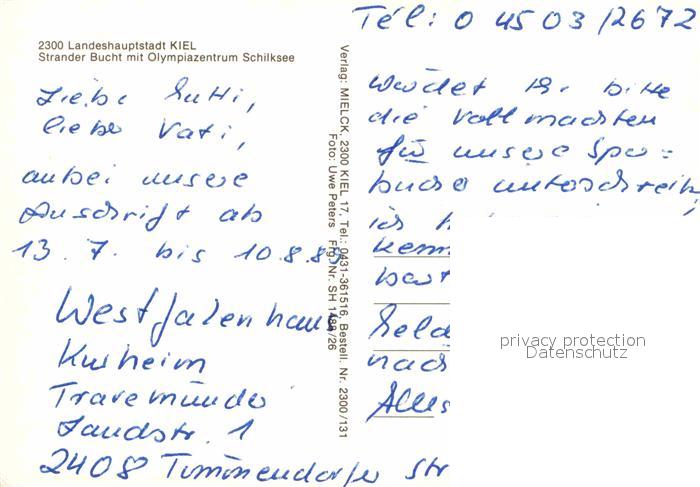 2300 Landeshauptstadt KIEL
Strander Bucht mit Olympiazentrum Schilksee
Liebe Mutti,
lieber Vati,
anbei unsere
Anschrift ab
13. 7. bis 10.8.
Westfalenhaus
Kurheim
Travemünder
Landstr. 1
2408 Timmendorfer Str
Verlag: MIELCK, 2300 KIEL 17, Tel.: 0431-361516, Bestell. Nr. 2300/131
Foto: Uwe Peters
Tél: 0 4503/2672
Würdet Ihr bitte
die Vollmachten
für unsere Spar=
bücher unterschreib
ich
kenn
nach
Alles
privacy protection
Datenschutz